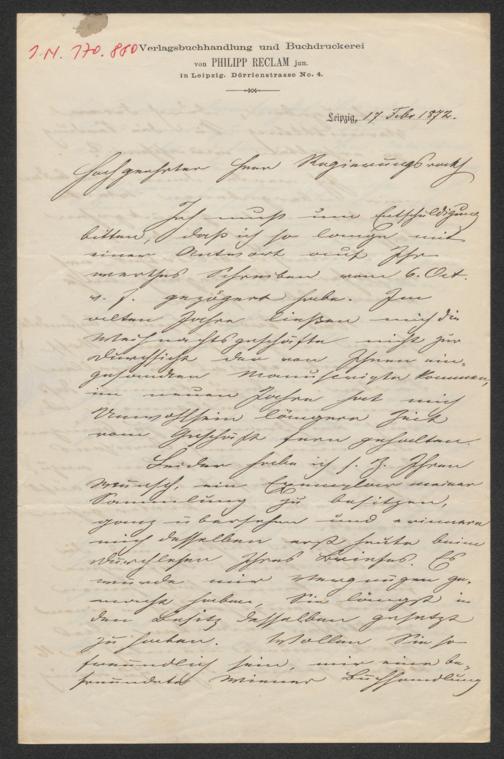 I.N. 170.880
Verlagsbuchhandlung und Buchdruckerei
von PHILIPP RECLAM jun.
in Leipzig. Dörrienstrasse No. 4.
Leipzig, 17 Febr 1872.
Hochgeehrter Herr Regierungsrath
Ich muß um Entschuldigung
bitten, daß ich so lange mit
einer Antwort auf Ihr
werthes Schreiben vom 6. Oct.
v. J. gezögert habe. Im
alten Jahre ließen mich die
Weihnachtsgeschäfte nicht zur
Durchsicht der von Ihnen ein-
gesandten Manuscripte kommen,
im neuen Jahre hat mich
Unwohlsein längere Zeit
vom Geschäft fern gehalten.
Leider habe ich s. Z. Ihren
Wunsch, ein Exemplar meiner
Sammlung zu besitzen,
ganz übersehen und erinnere
mich desselben erst heute beim
Durchlesen Ihres Briefes. Es
würde mir Vergnügen ge-
macht haben, Sie längst in
den Besitz desselben gesetzt
zu haben. Wollen Sie so
freundlich sein, mir eine be-
freundete Wiener Buchhandlung